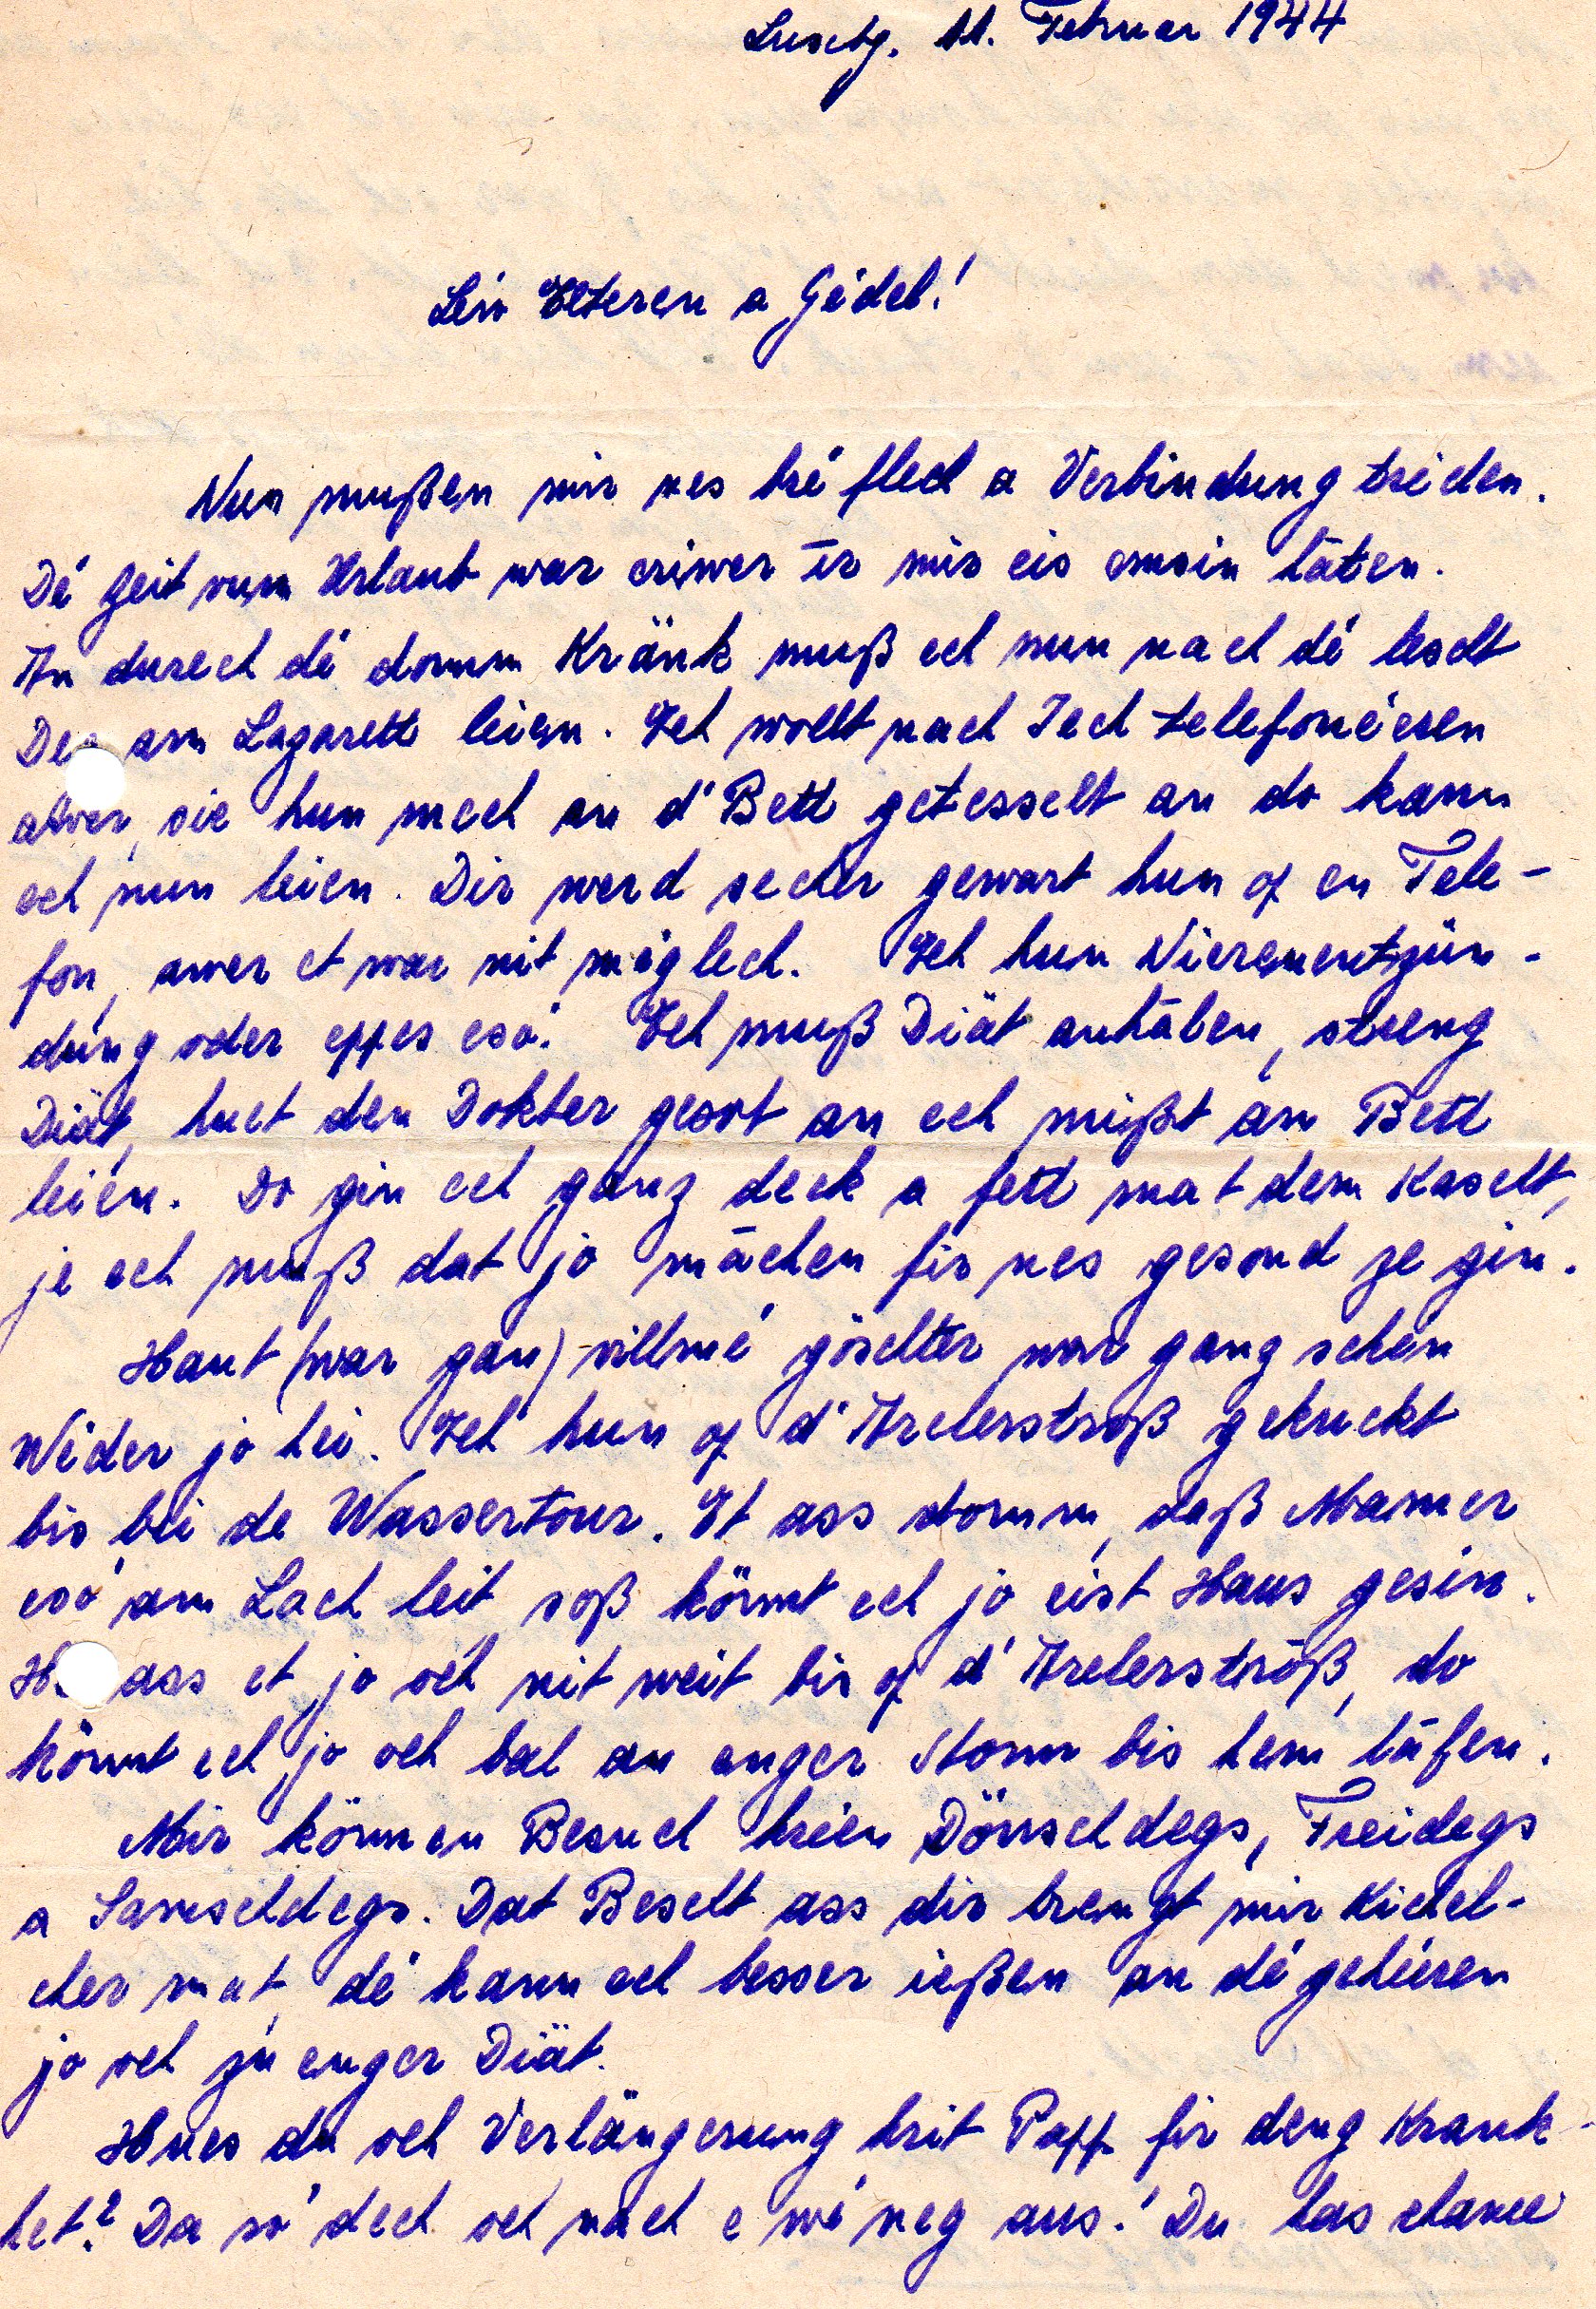 Luxbg. 11. Februar 1944
Léiv Elteren a Gédel!
Nun mußen mir nes bréflech a Verbindung trieden.
Dé Zeit vum Urlaub war eriwer ir mir eis emsin hāten.
An durech dé domm Kränk muß ech nun nach dé lescht
De  am Lazarett leien. Ech wollt nach Iech telefonéeren
awer, sie hun mech an d'Bett gefesselt an do kann
ech nun leien. Dir werd secher gewart hun of en Tele-
fon, awer et war nit méglech. Ech hun Nierenentzün-
dung oder eppes esó. Ech muß Diät anhālen, streng
Diät, huet den Dokter gesot an ech mißt am Bett
leien. Do gin ech ganz deck a fett mat dem Kascht,
je ech muß dat jo māchen fir nes gesond ze gin.
Haut (war gan) villmé göschter war gang schén
Wéder jo hei. Ech hun of d'Arelerstroß gekuckt
bis bei de Wassertour. Et ass domm, daß Mamer
esó am Lach leit soß könnt ech jo eist Haus gesin.
H  ass et jo och nit weit bis of d'Arelerstroß, do
könnt ech jo och bal an enger Stonn bis hem lāfen.
Mir können Besuch kréien Dönschdegs, Freidegs
a Samschdegs. Dat Bescht ass dir brengt mir Kichel-
cher mat, dé kann ech besser ießen an dé gehéieren
jo och zu enger Diät.
Hues du och Verlängerung krit Papp fir deng Krank-
het? Da ro' dech och nach e wéneg aus! Du has chance